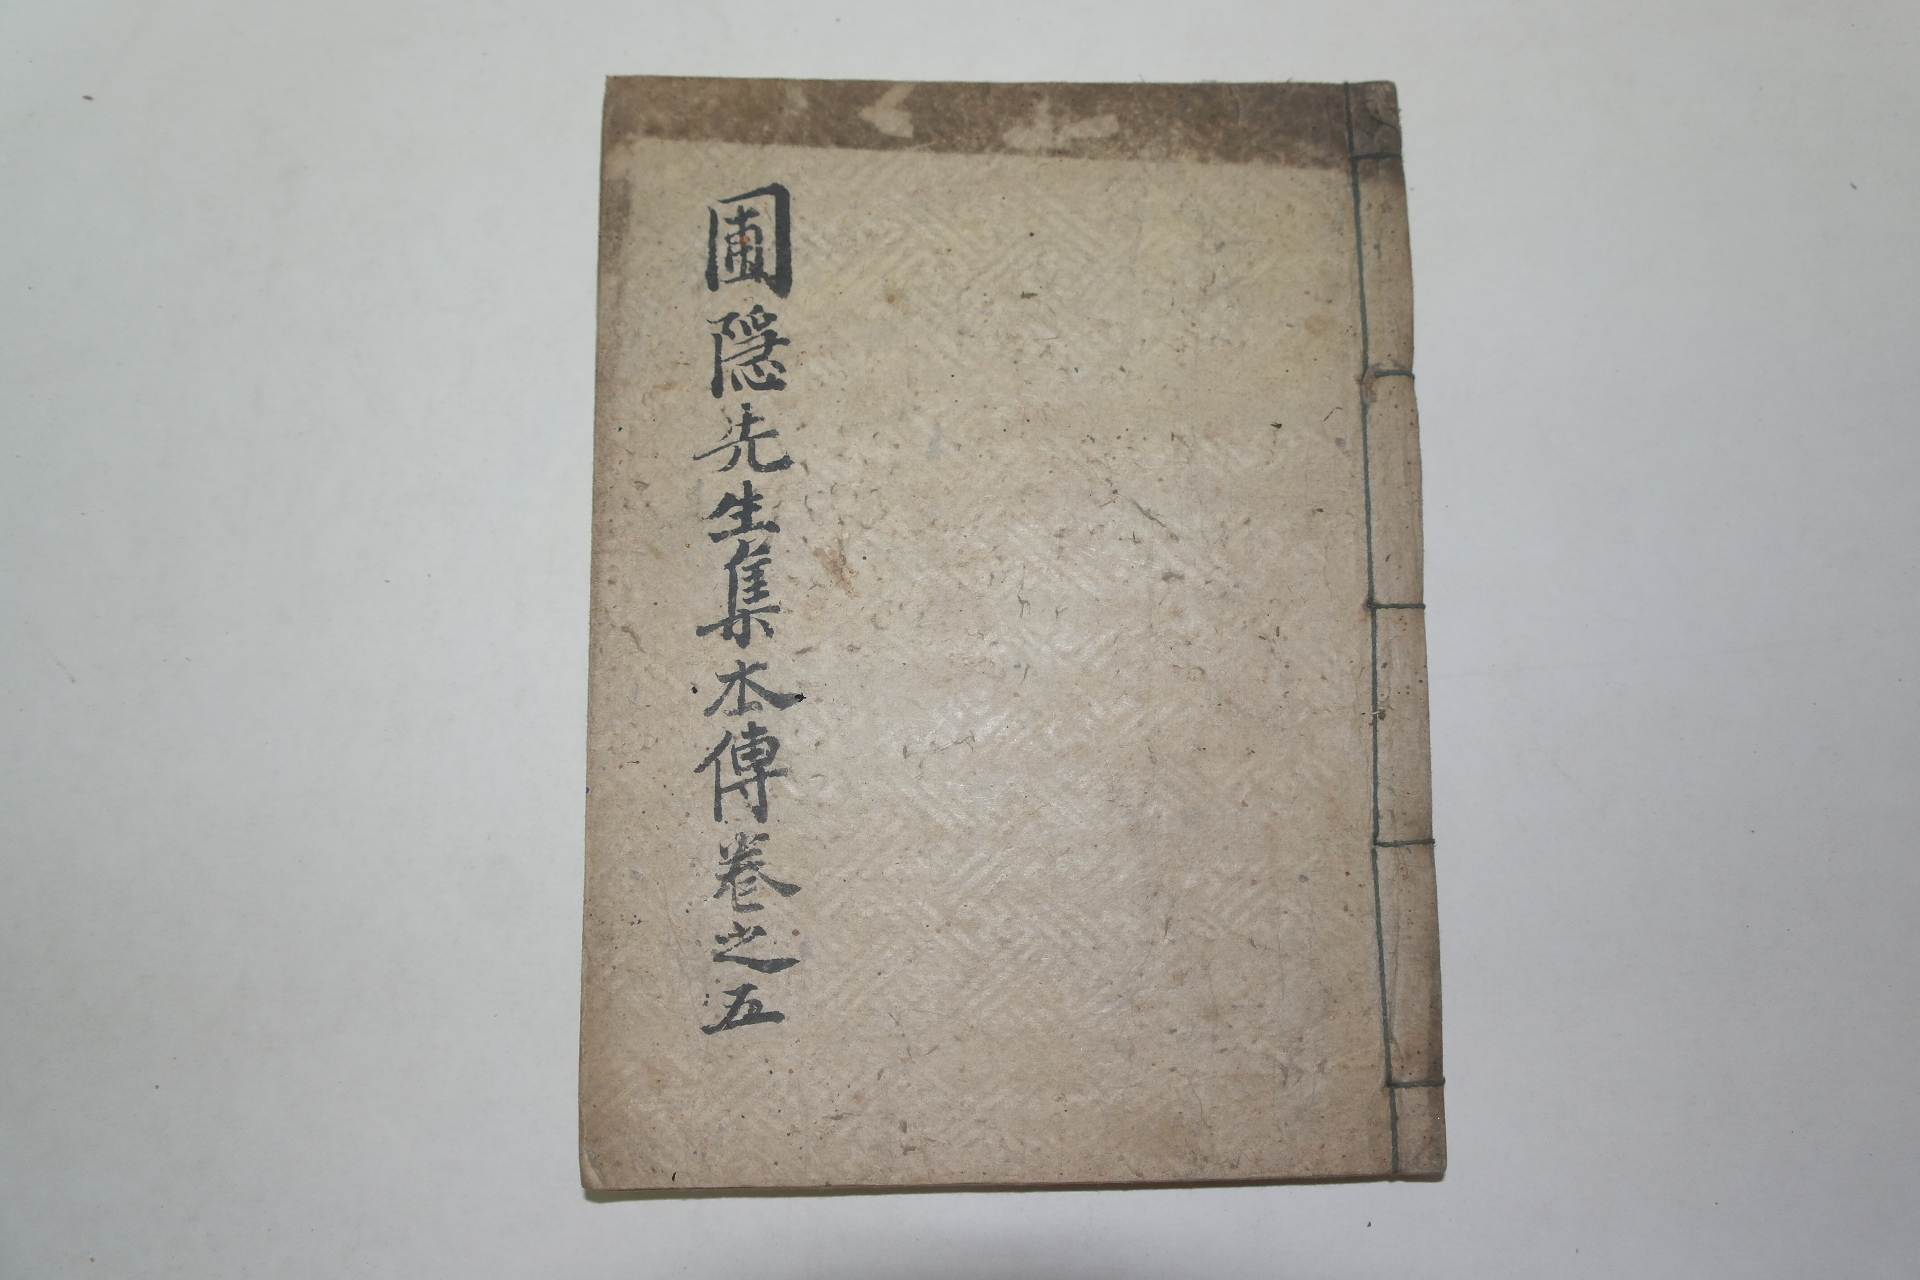 圃隠先生集本傳卷之五